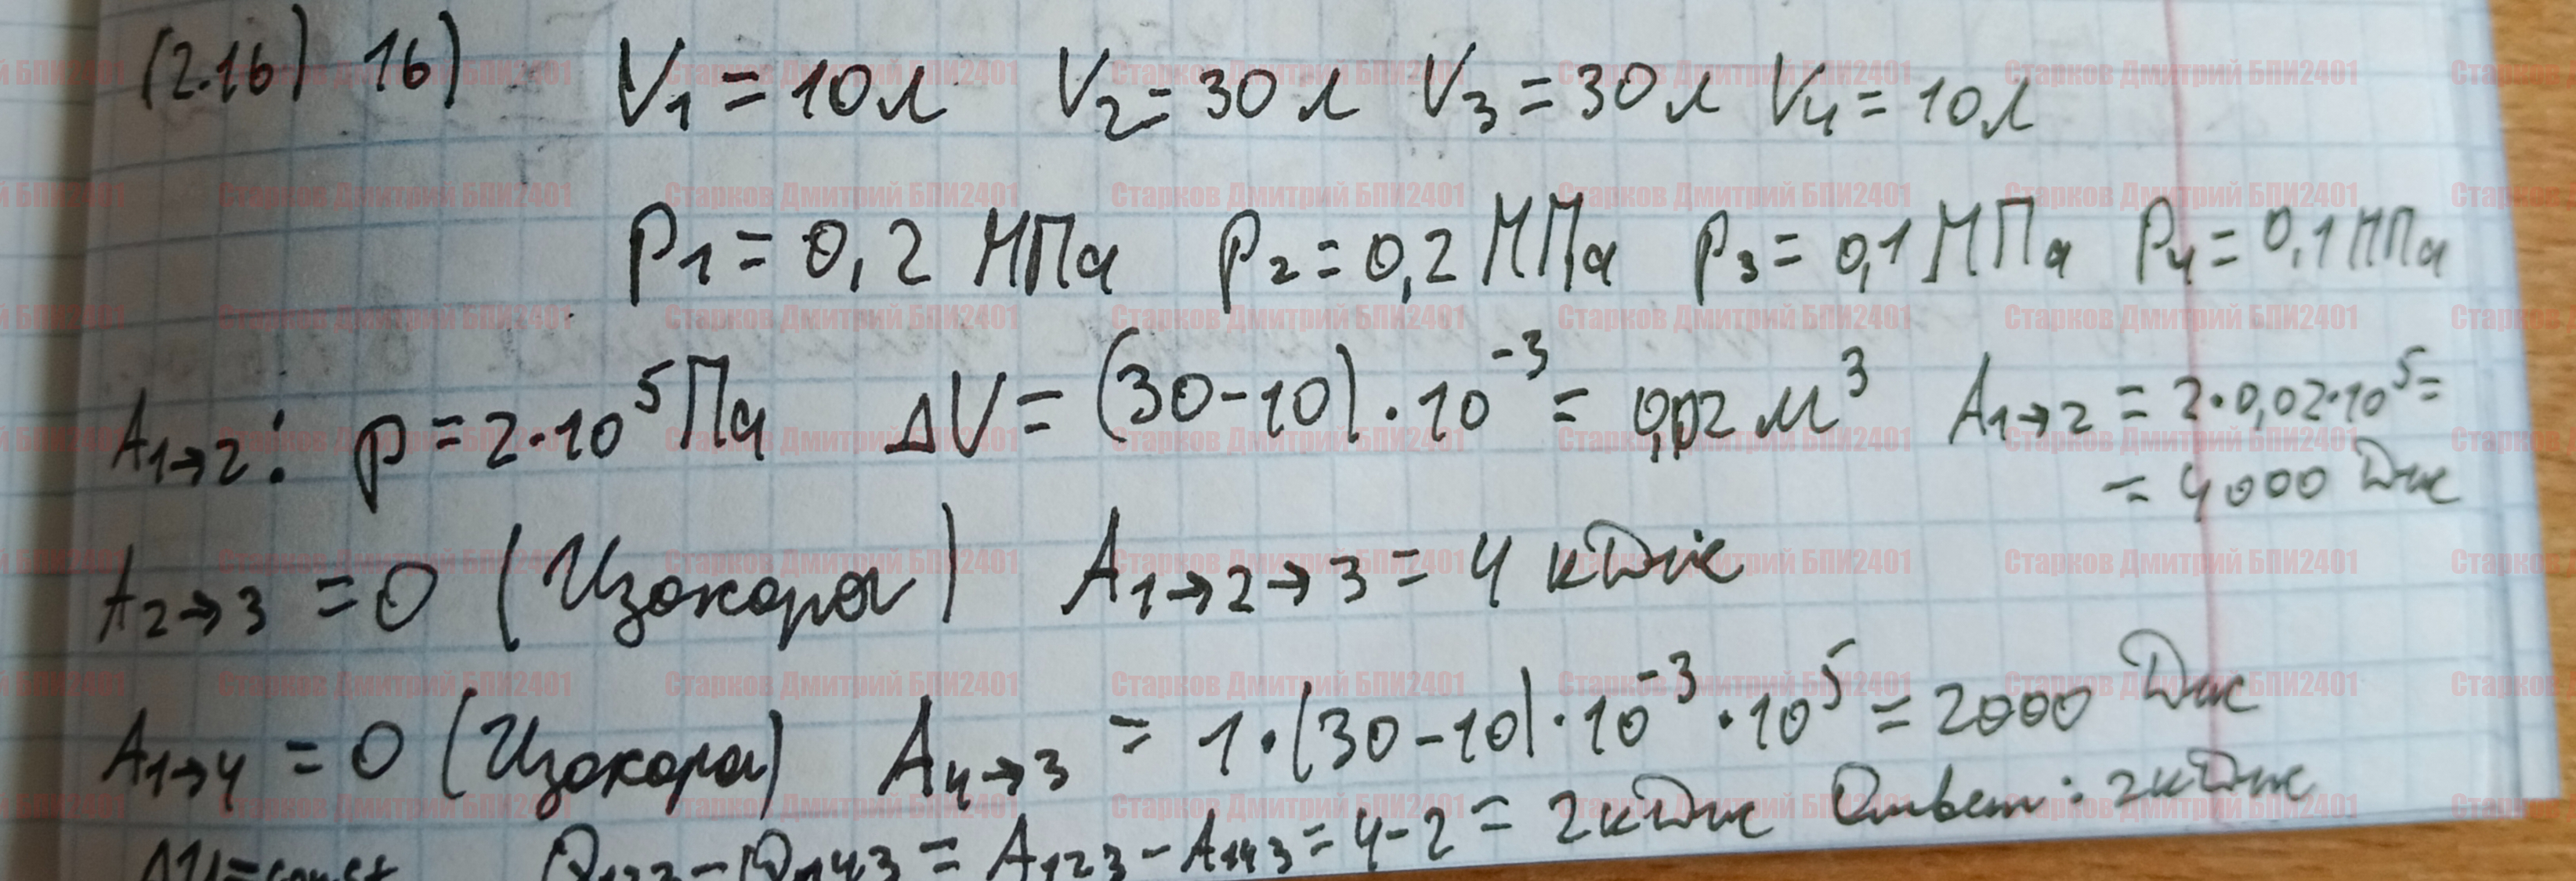 (2.16) 16) V₁ = 10л V₂ = 30 л V₃ = 30 л V₄ = 10л
P₁ = 0,2 МПа P₂ = 0,2 МПа P₃ = 0,1 МПа P₄ = 0,1 МПа
A₁→₂: p = 2·10⁵ Па ΔV = (30-10)·10⁻³ = 0,02 м³ A₁→₂ = 2·0,02·10⁵ =
= 4000 Дж
A₂→₃ = 0 (Изохора) A₁→₂→₃ = 4 кДж
A₁→₄ = 0 (Изохора) A₄→₃ = 1·(30-10)·10⁻³·10⁵ = 2000 Дж
ΔU = const Q₁₂₃ - Q₁₄₃ = A₁₂₃ - A₁₄₃ = 4-2 = 2кДж Ответ: 2кДж
Старков Дмитрий БПИ2401